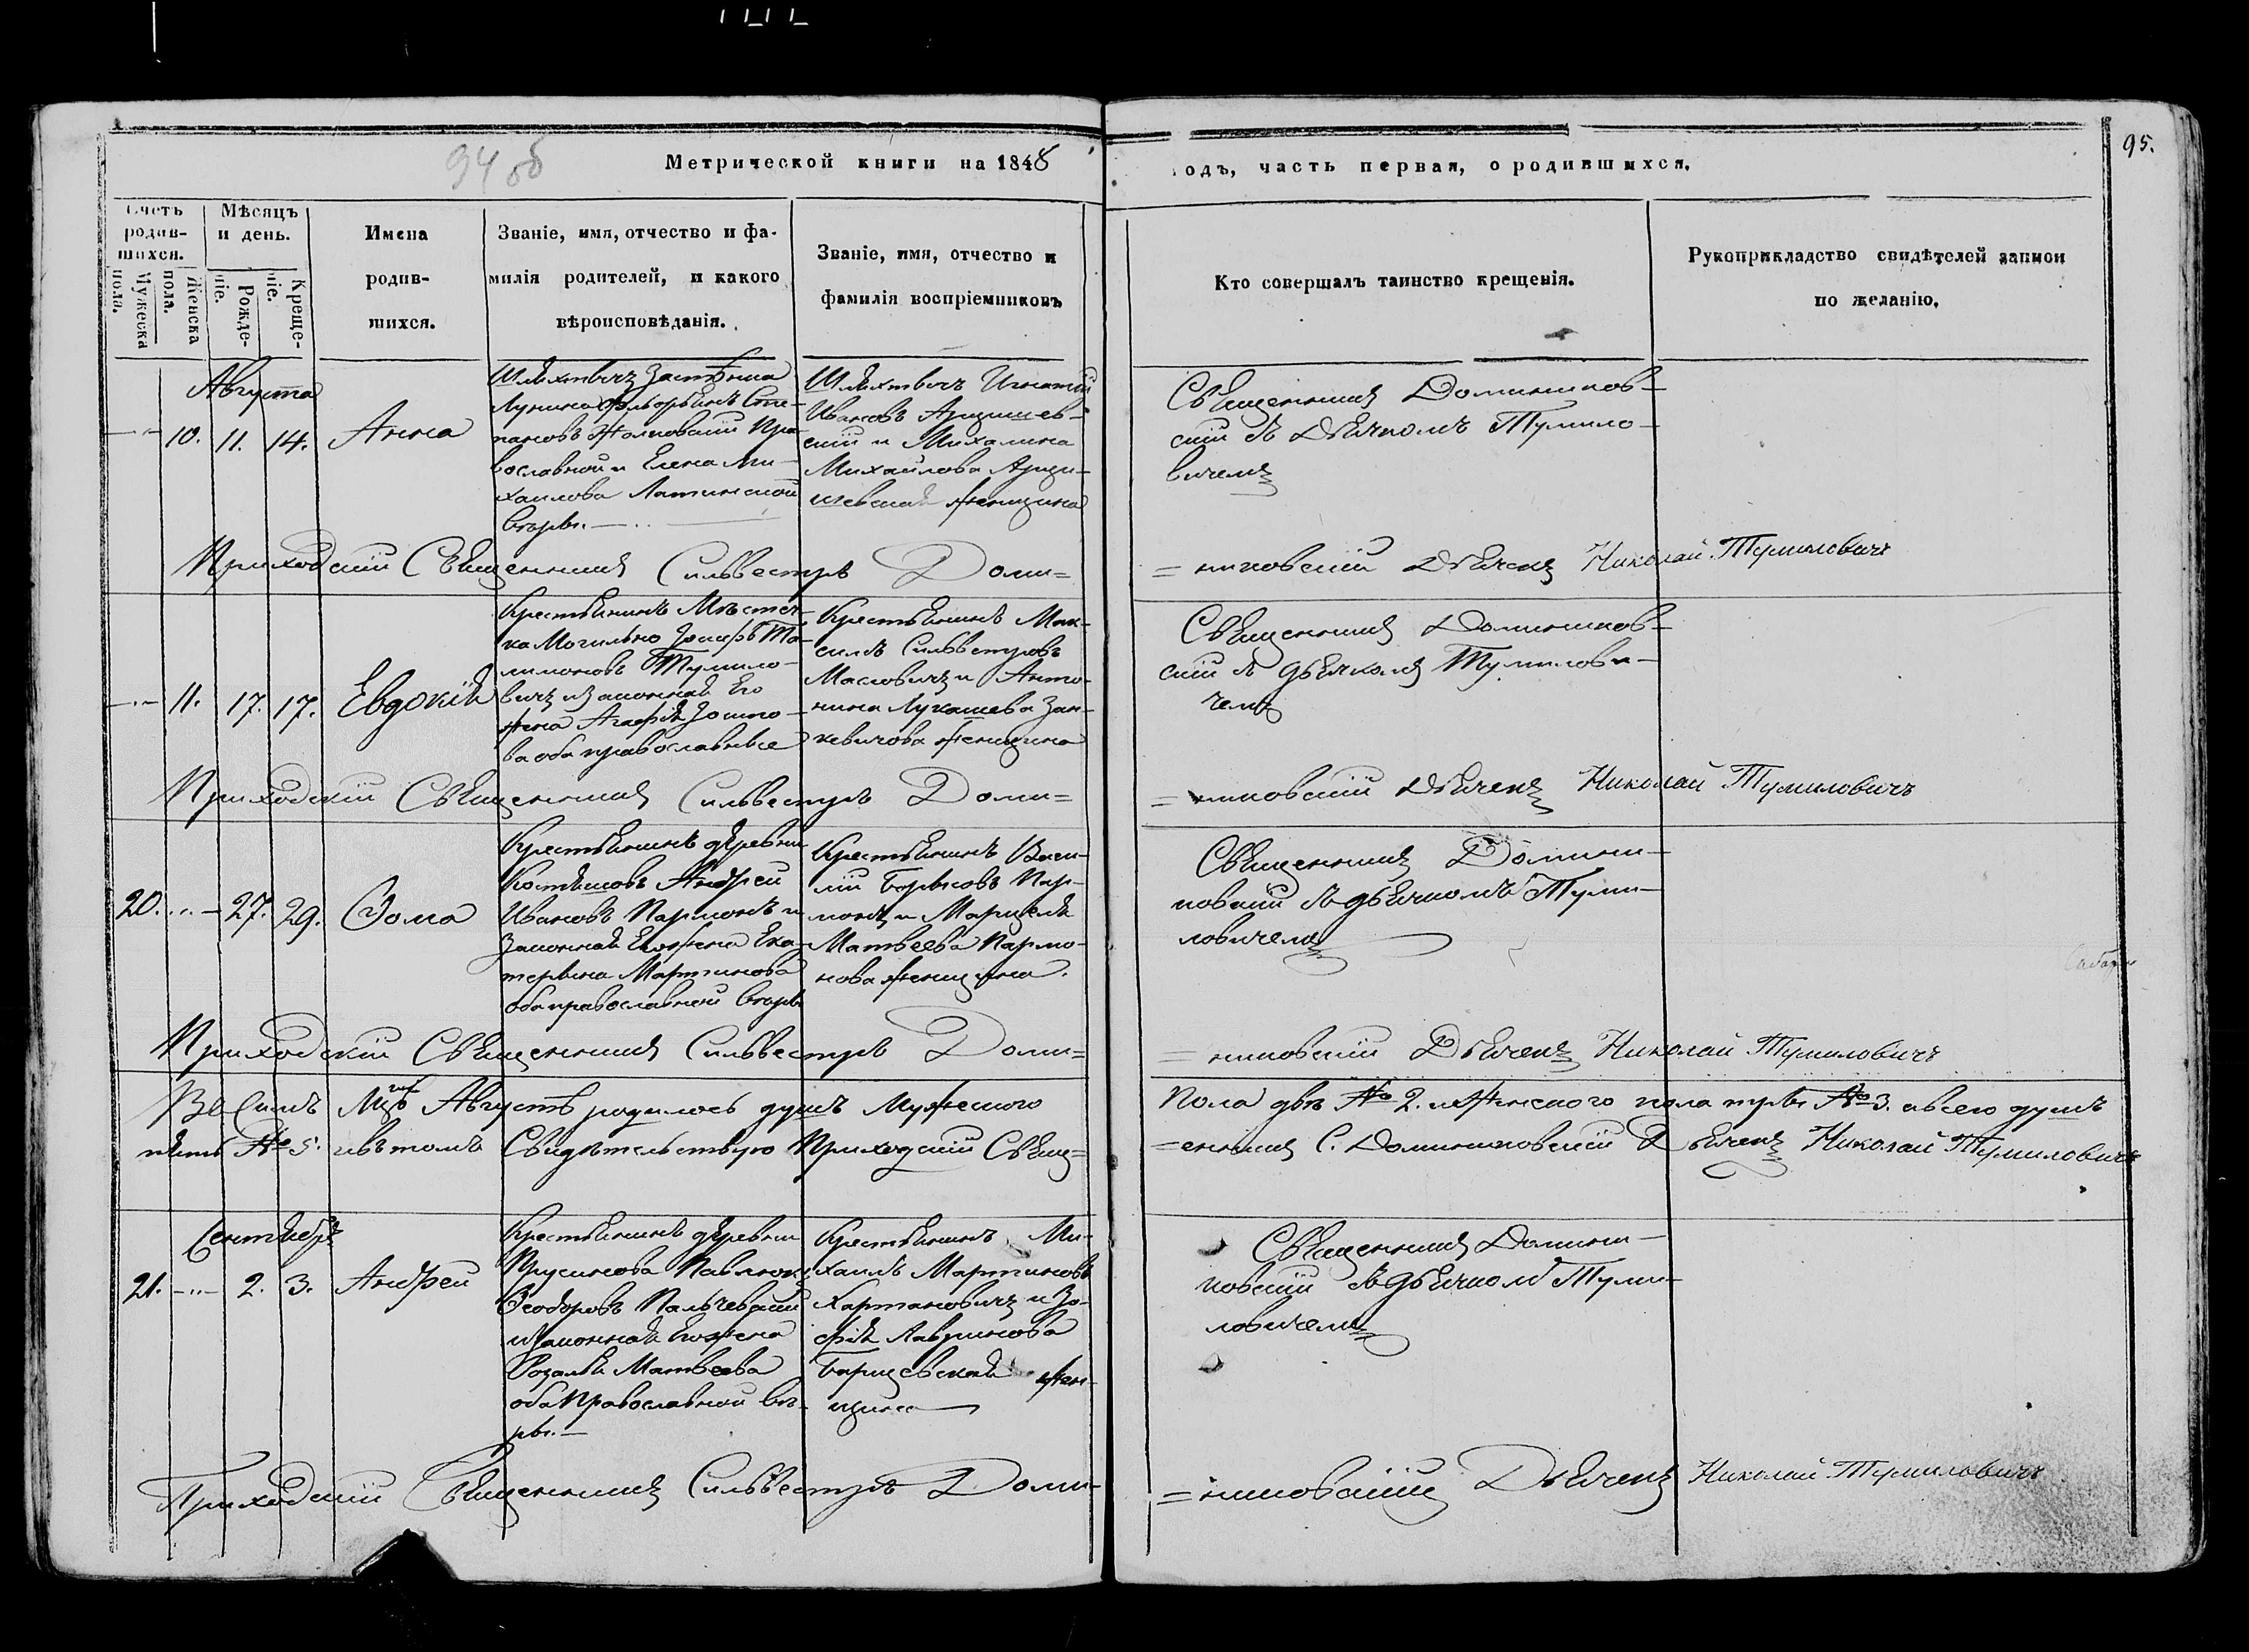 94 об
Метрической книги на 1848
одъ, часть первая, о родившихся.
95.
Счетъ родив-шихся.
Мѣсяцъ и день.
Мужеска пола.
Женска пола.
Рожде-ніе.
Креще-ніе.
Имена
родив-
шихся.
Званіе, имя, отчество и фа-
милія родителей, и какого
вѣроисповѣданія.
Званіе, имя, отчество и
фамилія воспріемниковъ
Кто совершалъ таинство крещенія.
Рукоприкладство свидѣтелей записи
по желанію.
Августа
10. 11. 14. Анна
Шляхтичъ Застѣнка
Лунина Флорьянъ Сте-
пановъ Жолновскій Пра-
вославной и Елена Ми-
хаилова Латинской
вѣры.
Шляхтичъ Игнатій
Ивановъ
скій и Михалина
Михайлова
шевская женщина
Священникъ Домиников-
скій съ Дьячкомъ Тумило-
вичемъ
Приходскій Священникъ Сильвестръ Доми=
=никовскій Дьячекъ Николай Тумиловичъ
11. 17. 17. Евдокія
Крестьянинъ Мѣстеч-
ка Могильно Іосифъ
Тумило-
вичъ и законная Его
жена Агафія
ва оба православные
Крестьянинъ Мак-
симъ Сильвестровъ
Масловичъ и Анто-
нина Лукашева Зан-
кевичова женщина
Священникъ Домиников-
скій съ дьячкомъ Тумилови-
чемъ
Приходскій Священникъ Сильвестръ Доми=
=никовскій Дьячекъ Николай Тумиловичъ
20. 27. 29. Ѳома
Крестьянинъ деревни
Костяшовъ Андрей
Ивановъ Пармонъ и
Законная Его жена Ека-
терина Мартинова
оба православной вѣры
Крестьянинъ Васи-
лій Борисовъ Пар-
монъ и Марцеля
Матвеева Пармо-
нова женщина.
Священникъ Домини-
ковскій съ дьячкомъ Туми-
ловичемъ
Приходскій Священникъ Сильвестръ Доми=
=никовскій Дьячекъ Николай Тумиловичъ
Въ Семъ Мцѣ Августѣ родилось душъ Мужеского
Пола двѣ № 2. и Женского пола три № 3. а всего душъ
пять № 5. и въ томъ Свидѣтельствую Приходскій Свящ=
=енникъ С. Доминиковскій Дьячекъ Николай Тумиловичъ
Сентября
21. 2. 3. Андрей
Крестьянинъ деревни
Прусинова Павлюкъ
Ѳеодоровъ Пальчевскій
и Законная Его жена
Розалія Матвеева
оба Православной вѣ-
ры.
Крестьянинъ Ми-
хаилъ Мартиновъ
Хартановичъ и Зо-
фія Лавринова
Борщевская жен-
щина
Священникъ Домини-
ковскій съ дьячкомъ Туми-
ловичемъ
Приходскій Священникъ Сильвестръ Доми-
=никовскій Дьячекъ Николай Тумиловичъ